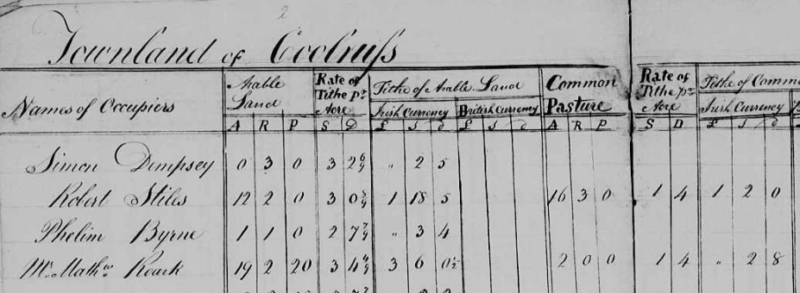 2
Townland of Coolruss
Names of Occupiers Arable Land Rate of Tithe pr Acre Tithe of Arable Land Common Pasture Rate of Tithe pr Acre Tithe of Comm
Irish Currency British Currency Irish Currency
A R P S D £ S d £ S d A R P S D £ S d
Simon Dempsey 0 3 0 3 2 " 2 5
Robert Stiles 12 2 0 3 0 1 18 5 16 3 0 1 4 1 2 0
Phelim Byrne 1 1 0 2 7 " 3 4
Mr Mathw Roark 19 2 20 3 4 3 6 0½ 2 0 0 1 4 " 2 8